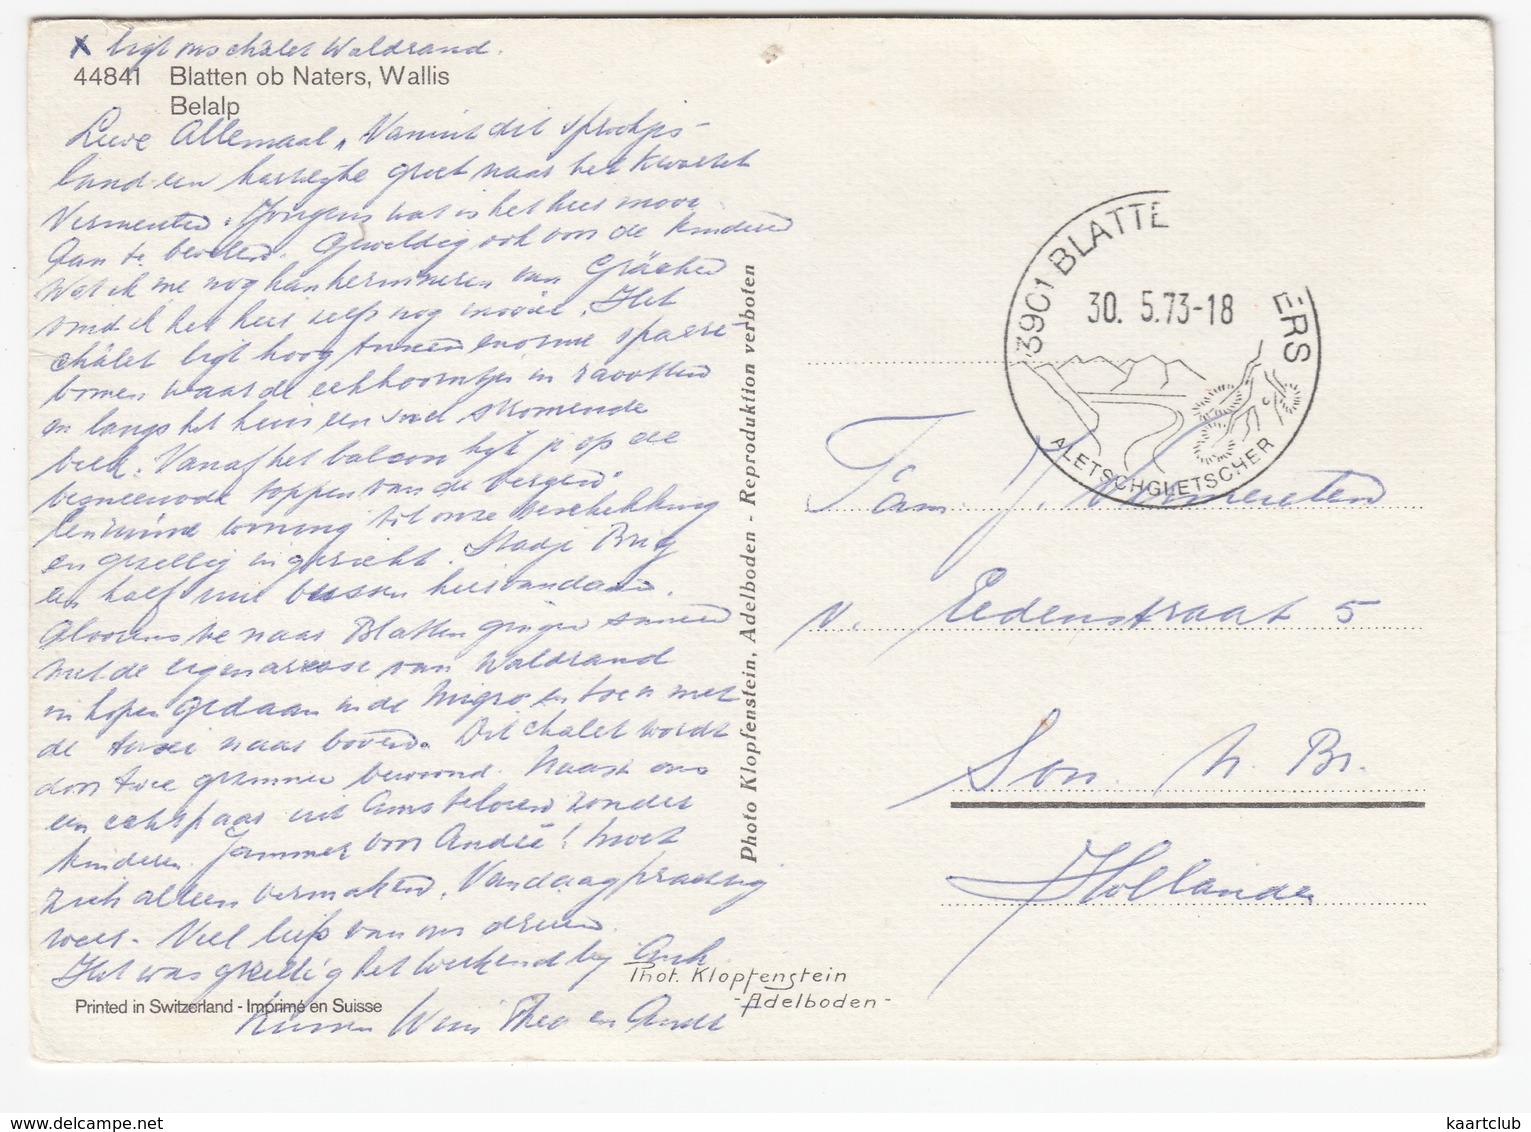 x ligt ons châlet Waldrand.
44841 Blatten ob Naters, Wallis
Belalp
Lieve Allemaal, Vanuit dit sprookjes-
land een hartelijke groet naar het kwartet
Vermeulen. Jongens wat is het hier mooi
Geweldig ook voor de kinderen
Wat ik me nog kan herinneren van Grächen
vind ik het hier zelfs nog mooier. Het
châlet ligt hoog tussen enorme sparre-
bomen waar de eekhoorntjes in ravotten
en langs het huis een snel stromende
beek. Vanaf het balcon kijk je op de
besneeuwde toppen van de bergen.
Een ruime woning tot onze beschikking
en gezellig ingericht. Stadje Brig
een half uur bussen hier vandaan.
naar Blatten gingen samen
met de eigenaresse van Waldrand
in kopen gedaan in de Migro, en toen met
de taxi naar boven. Dit chalet wordt
door twee gezinnen bewoond. Naast ons
een echtpaar uit Amstelveen zonder
kinderen. Jammer voor André! Moet
zich alleen vermaken. Vandaag prachtig
weer. Veel liefs van ons drieën.
Het was gezellig het weekend bij
Kussen Wim Theo en André
Printed in Switzerland - Imprimé en Suisse
Photo Klopfenstein, Adelboden - Reproduktion verboten
Phot. Klopfenstein
-Adelboden-
3901 BLATTE ERS
30. 5.73-18
ALETSCHGLETSCHER
Fam. J. Vermeulen
v. Eedenstraat 5
Son. N. Br.
Holland
kaartclub